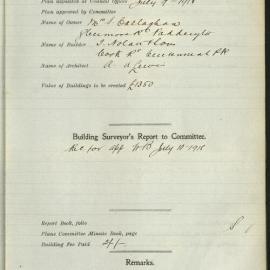 Plan deposited at Council Offices July 9 - 1918
Plan approved by Committee
Name of Owner Mrs S. Callaghan
Glenmore Rd Paddington
Name of Builder J. Nolan
Cook Rd Centennial Pk
Name of Architect A. A. Lewis
Value of Buildings to be erected £1350
Building Surveyor's Report to Committee.
Rec for app July 10 - 1918
Report Book, folio
Plans Committee Minute Book, page
Building Fee Paid
Remarks.